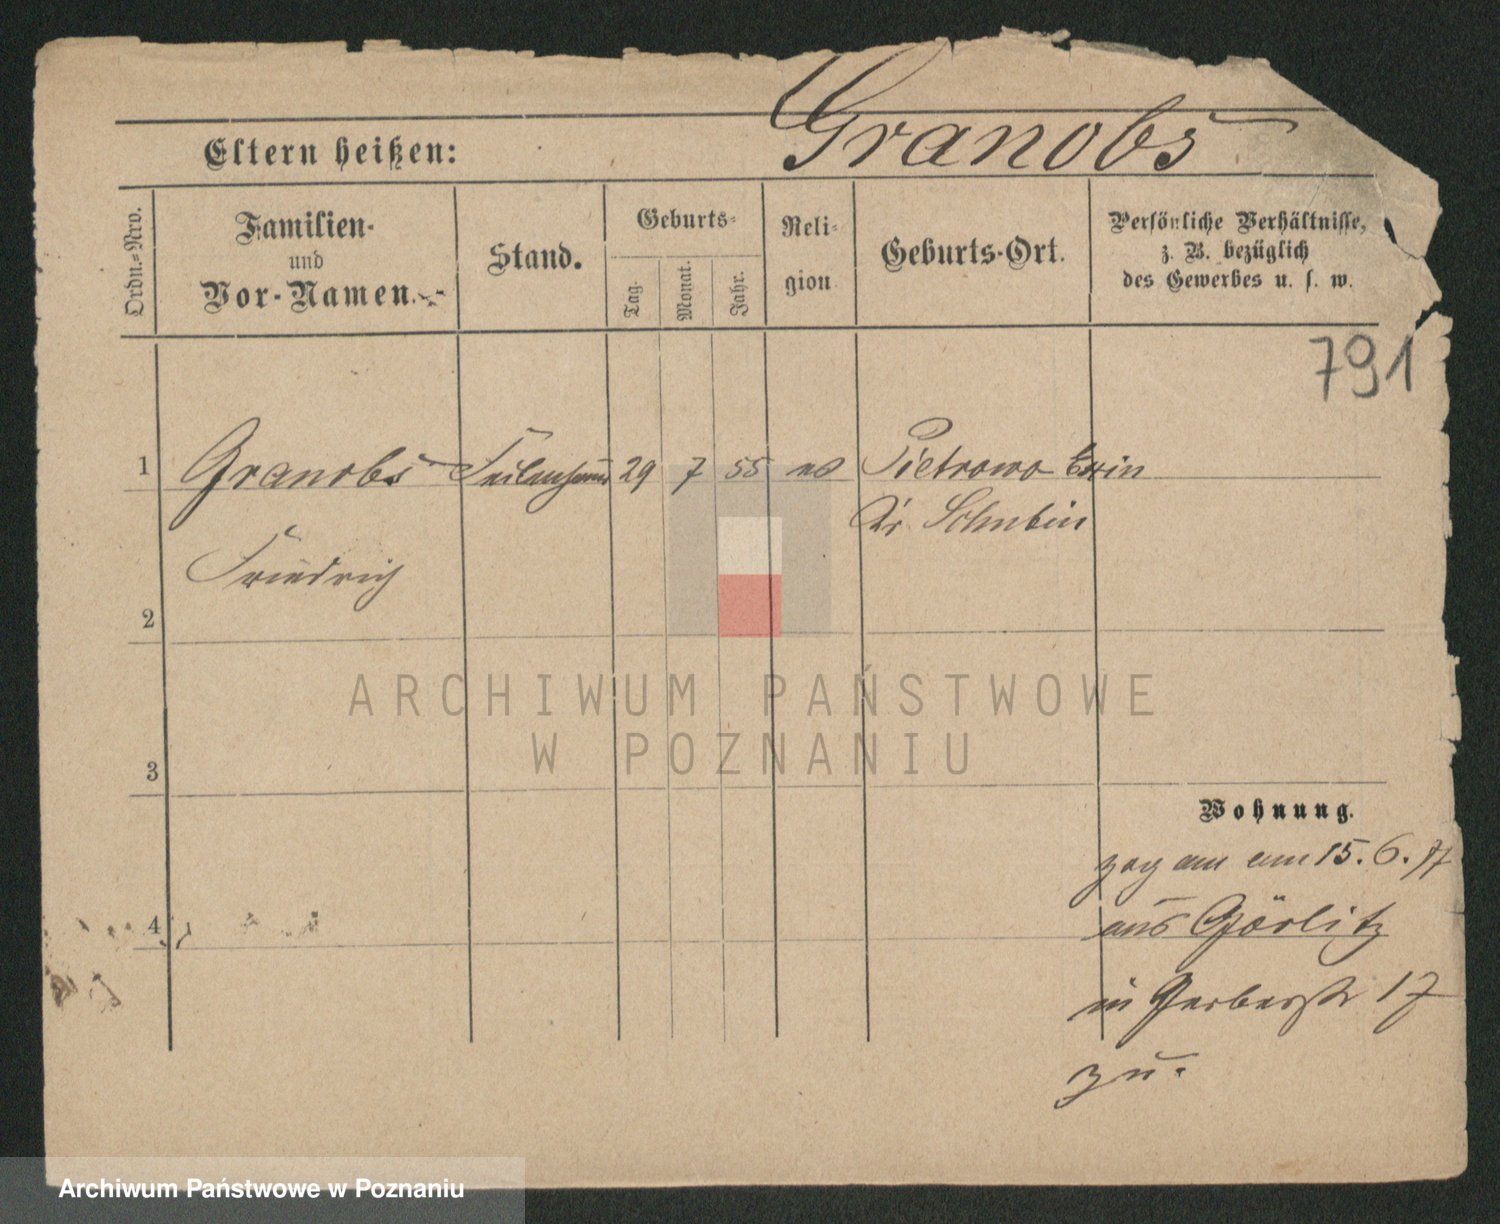 Granobs
Eltern heißen:
Ordn.=Nro.
Familien-
und
Vor-Namen.
Stand.
Geburts=
Tag.
Monat.
Jahr.
Reli-
gion
Geburts-Ort.
Persönliche Verhältnisse,
z. B. bezüglich
des Gewerbes u. s. w.
791
1 Granobs 29 7 55 Pietrowo
Kr. Schubin
Friedrich
2
ARCHIWUM PAŃSTWOWE
W POZNANIU
3
Wohnung.
zog am 15. 6. 77
4 aus Görlitz
in Gerberstr 17
zu.
Archiwum Państwowe w Poznaniu